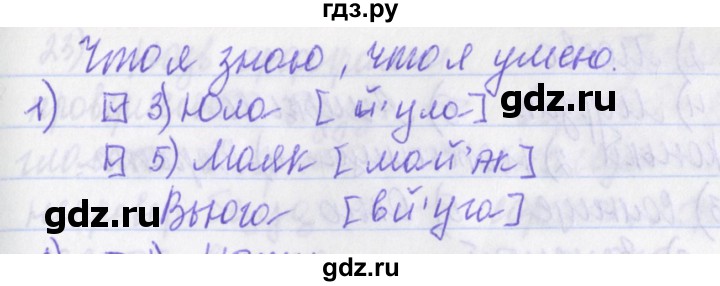 гдз.ру
Что я знаю, что я умею.
1) ☑ 3) Юла [й'ула] gdz.ru
☑ 5) Маяк [май'ак]
gdz.ru Вьюга [вй'уга]
gdz.ru